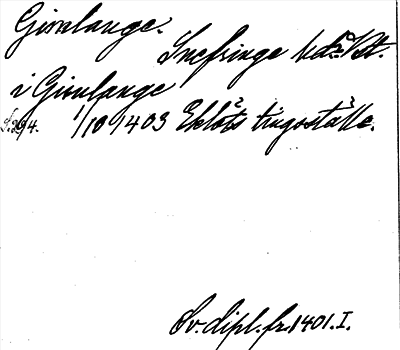 Gioralange.
Snefringe hd. Vstm.
i Gioulange
S.294. 1/10 1403 Eklöts tingställe.
Sv. dipl. fr. 1401. I.